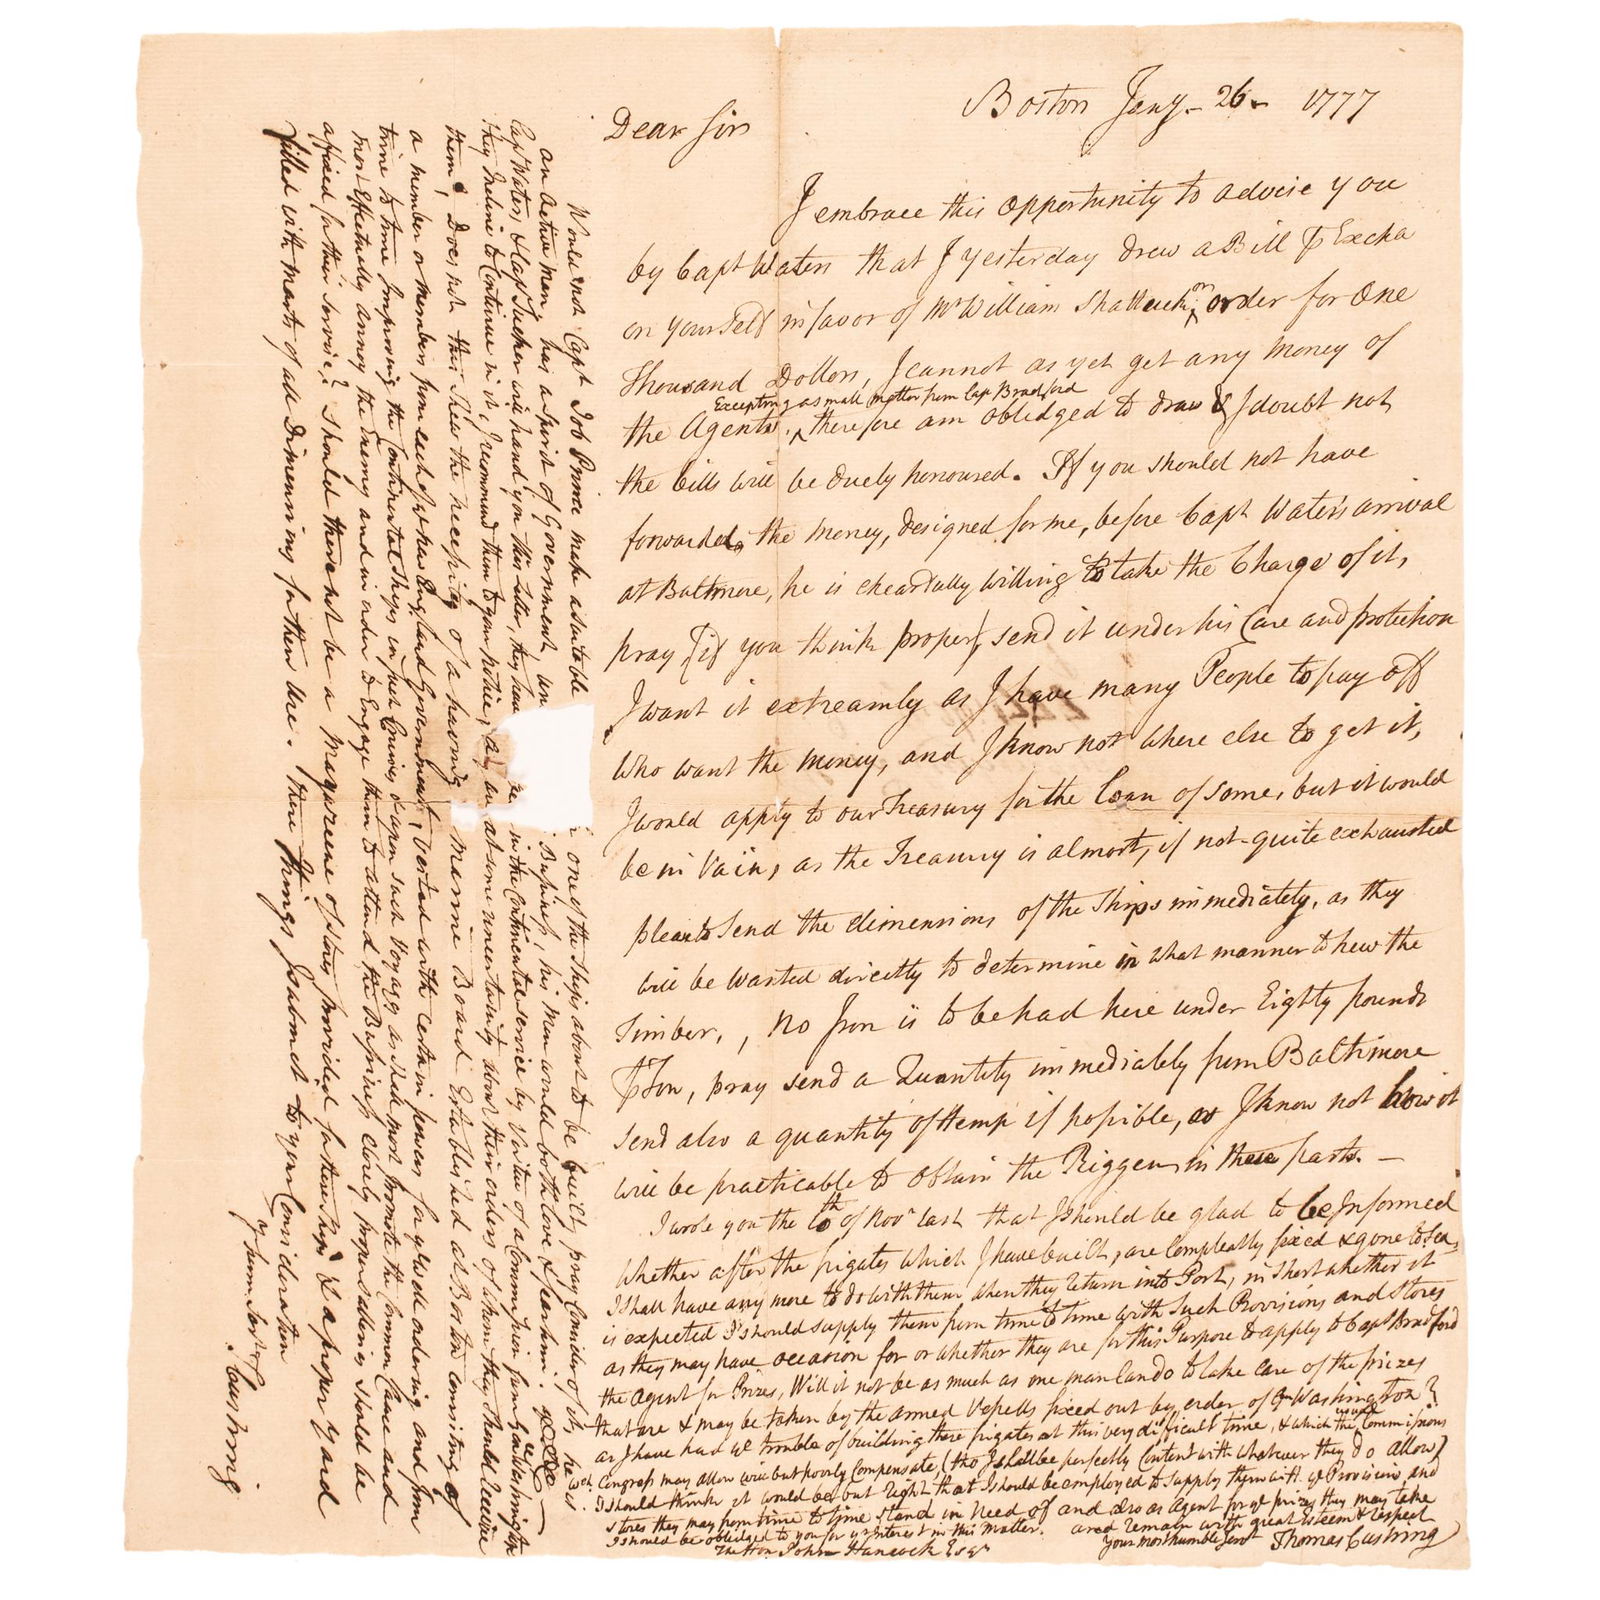 Boston Jany- 26- 1777
Dear Sir
I embrace this opportunity to advise you
by Capt Waters that I yesterday drew a Bill Excha
on yourself in favor of Mr William Shattuck, or order for One
Thousand Dollars, I cannot as yet get any Money of
Excepting a small matter from Cap Bradford
the Agents. therefore am obledged to draw & I doubt not
the bills will be duely honoured. If you should not have
forwarded the Money, designed for me, before Capt Waters arrival
at Baltimore, he is chearfully willing to take the Charge of it,
pray (if you think proper) send it under his Care and protection
I want it extreamly as I have many People to pay off
Who want the Money, and I know not where else to get it,
I would apply to our Treasury for the Loan of some, but it would
be in Vain, as the Treasury is almost, if not quite exhausted
please to Send the dimensions of the Ships immediately, as they
will be Wanted directly to determine in what manner to hew the
Timber, , No Iron is to be had here under Eighty pounds
Ton, pray send a Quantity immediately from Baltimore
send also a quantity of Hemp if possible, as I know not how it
will be practicable to obtain the Riggen in these parts. —
I wrote you the of Novr last that I should be glad to be Informed
Whether after the frigates which I have built, are Compleatly fixed & gone to Sea,
I shall have any more to do with them when they return into Port, in short whether it
is expected I should supply them from time to time with Such Provisions and Stores
as they may have occasion for or whether they are for this Purpose to apply to Capt Bradford
the Agent for Prizes, Will it not be as much as one man can do to take care of the prizes
that are & may be taken by the armed Vessells fixed out by order of G Washington?
as I have had ye trouble of building these frigates at this very difficult time, & which the usual Commissions
Congress may allow will but poorly Compensate, (tho I shall be perfectly Content with whatever they do allow)
I should think it would be but right that I should be employed to Supply them with ye Provisions and
stores they may from time to time stand in Need of and also as Agent for ye prizes they may take
I should be obliedged to you for yr Interest in this matter. and remain with great esteem & respect
Your most humble Servt Thomas Cushing
The Hon. John Hancock Esqr
Would not Capt Job Prince make a suitable one of the Ships about to be built, pray Consider of it, he is
an active man, has a spirit of Government Business, his Men would both love & fear him.
Cap Waters & Cap Tucker will hand you this Letter, they have in the Continental service by Virtue of a Commission from Genll Washington
they Incline to Continue in it, I recommend them to your notice, at some uncertainty about their orders of whom they should receive
them, Does not this Shew the necessity of a having Marine Board Established at Boston consisting of
a member or members from each of ye New England Governments, Vested with certain powers for ye ordering and from
time to time Improving the Continental Ships in such Cruises & upon such Voyages as shall most promote the Common Cause and
most effectually annoy the Enemy and in order to Engage them to attend the Business closely proper Sallaries should be
affixed for their Service? Should there not be a Magazeene of Stores provided for these Ships & a proper Yard
filled with Masts of all Dimensions for their Use. These things I submit to your Consideration
Cushing